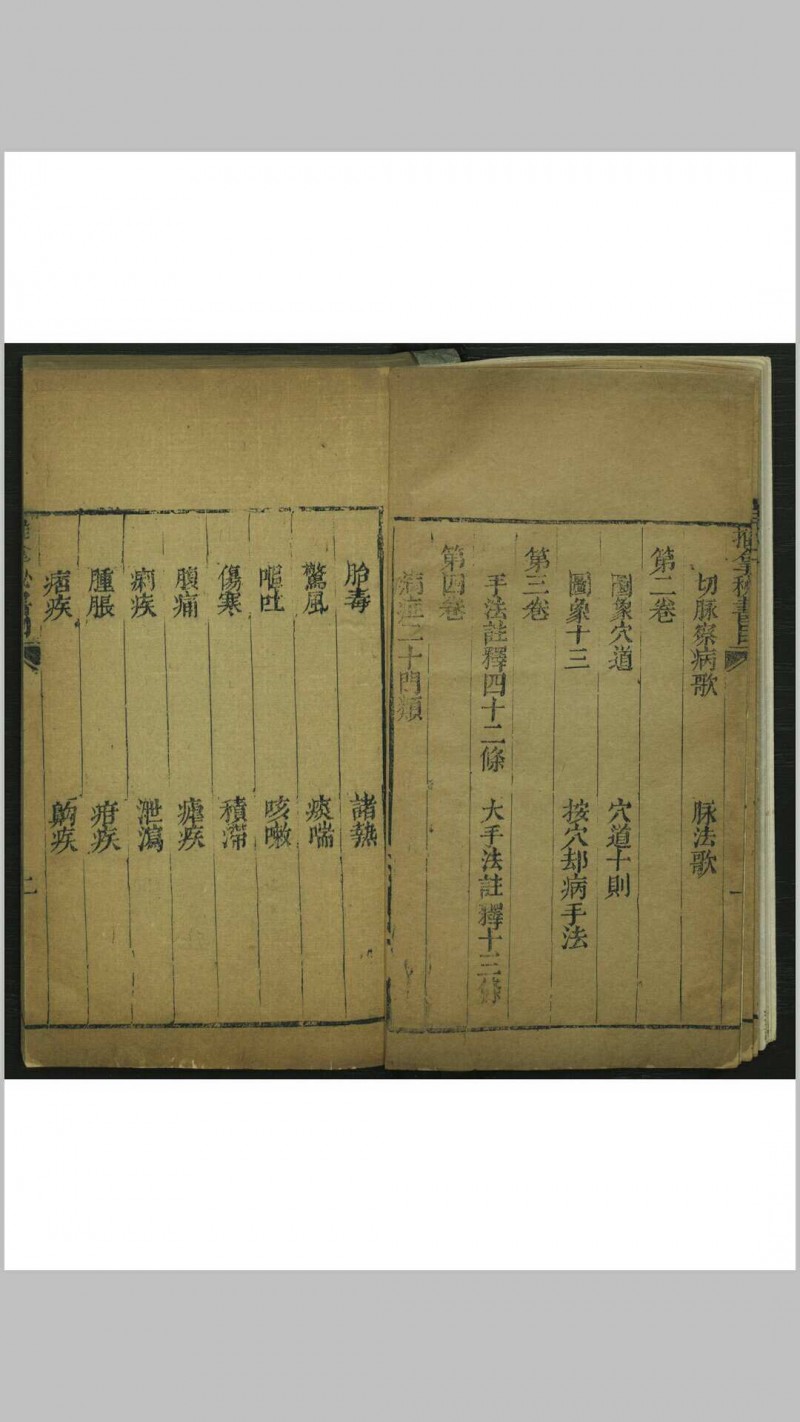 推拿秘書目
切脉察病歌　脉法歌
第二卷
圖象穴道　穴道十則
圖象十三　按穴却病手法
第三卷
手法註釋四十二條　大手法註釋十三條
第四卷
病症二十門類
胎毒　諸熱
驚風　痰喘
嘔吐　咳嗽
傷寒　積滯
腹痛　瘧疾
痢疾　泄瀉
腫脹　疳疾
痞疾　齁疾
二